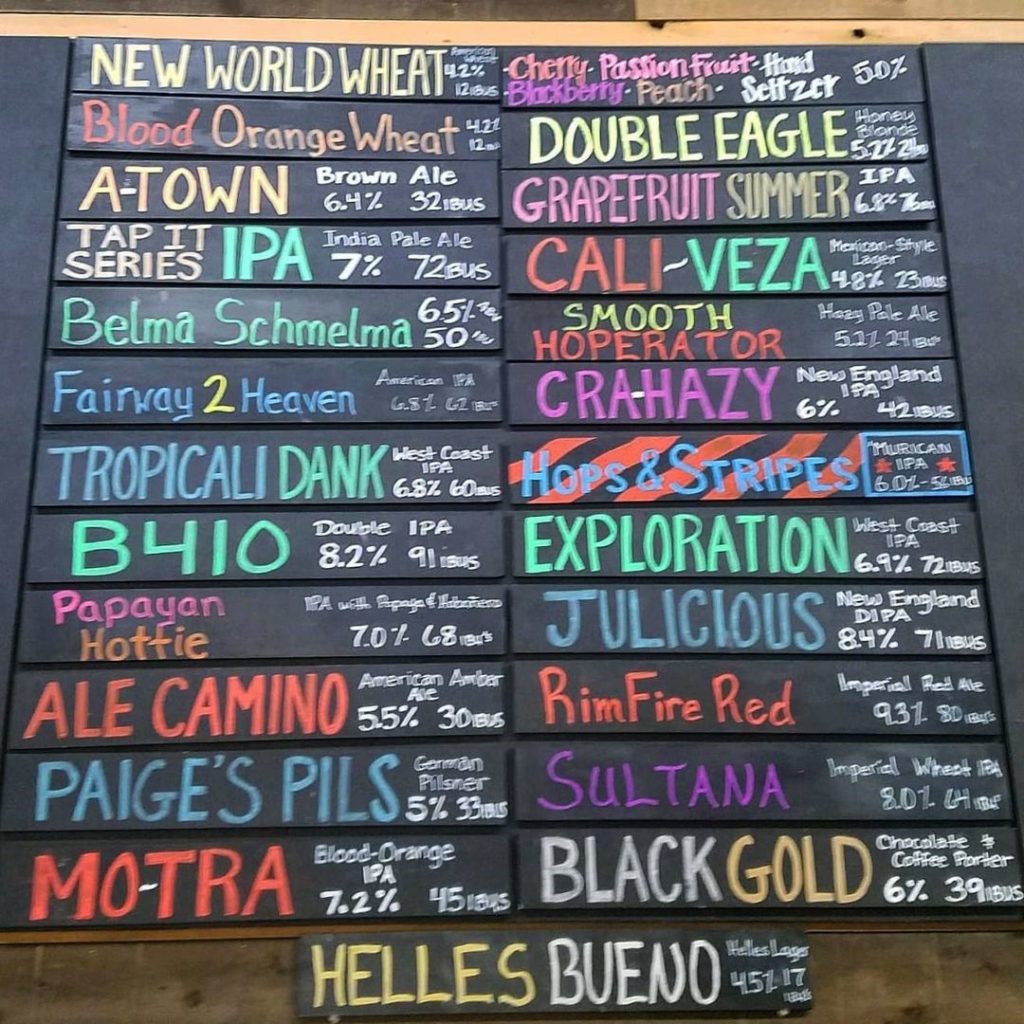 NEW WORLD WHEAT American Wheat 4.2% 12 IBUS
Blood Orange Wheat 4.2% 12
A-TOWN Brown Ale 6.4% 32 IBUS
TAP IT SERIES IPA India Pale Ale 7% 72 IBUS
Belma Schmelma 6.5% 50
Fairway 2 Heaven American IPA 6.8% 62 IBU's
TROPICALI DANK West Coast IPA 6.8% 60 IBUS
B410 Double IPA 8.2% 91 IBUS
Papayan Hottie IPA with Papaya & Habanero 7.0% 68 IBU's
ALE CAMINO American Amber Ale 5.5% 30 IBUS
PAIGE'S PILS German Pilsner 5% 33 IBUS
MO-TRA Blood-Orange IPA 7.2% 45 IBUS
Cherry · Passion Fruit · Hard
Blackberry · Peach · Seltzer 5.0%
DOUBLE EAGLE Honey Blonde 5.2%
GRAPEFRUIT SUMMER IPA 6.8% 76
CALI-VEZA Mexican-Style Lager 4.8% 23 IBUS
SMOOTH HOPERATOR Hazy Pale Ale 5.2% 24 IBU's
CRA-HAZY New England IPA 6% 42 IBUS
HOPS & STRIPES 'MURICAN IPA 6.0% - 56 IBUS
EXPLORATION West Coast IPA 6.9% 72 IBUS
JULICIOUS New England DIPA 8.4% 71 IBUS
RimFire Red Imperial Red Ale 9.3% 80 IBU's
SULTANA Imperial Wheat IPA 8.0% 64 IBU's
BLACK GOLD Chocolate & Coffee Porter 6% 39 IBUS
HELLES BUENO Helles Lager 4.5% 17 IBU's